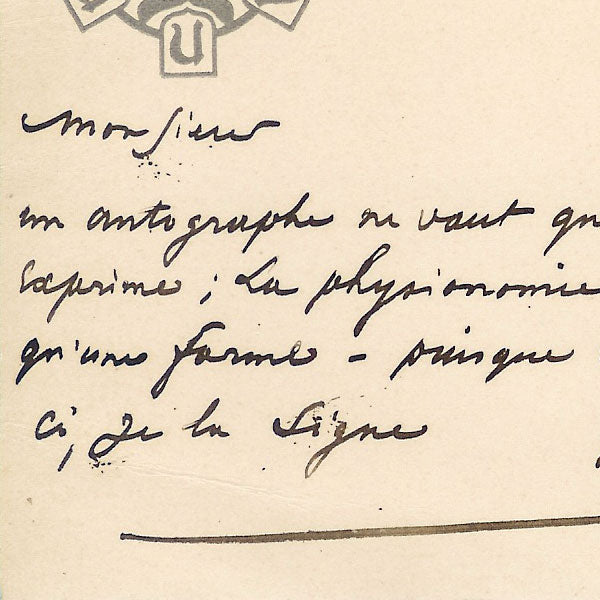 U
Monsieur
un autographe ne vaut qu
exprime ; La physionomie
qu'une forme – puisque
ci, je la signe